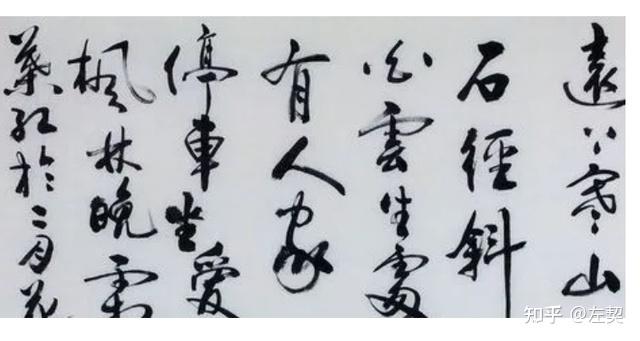 遠上寒山
石徑斜
白雲生處
有人家
停車坐愛
楓林晚霜
葉紅於二月花
知乎 @左契